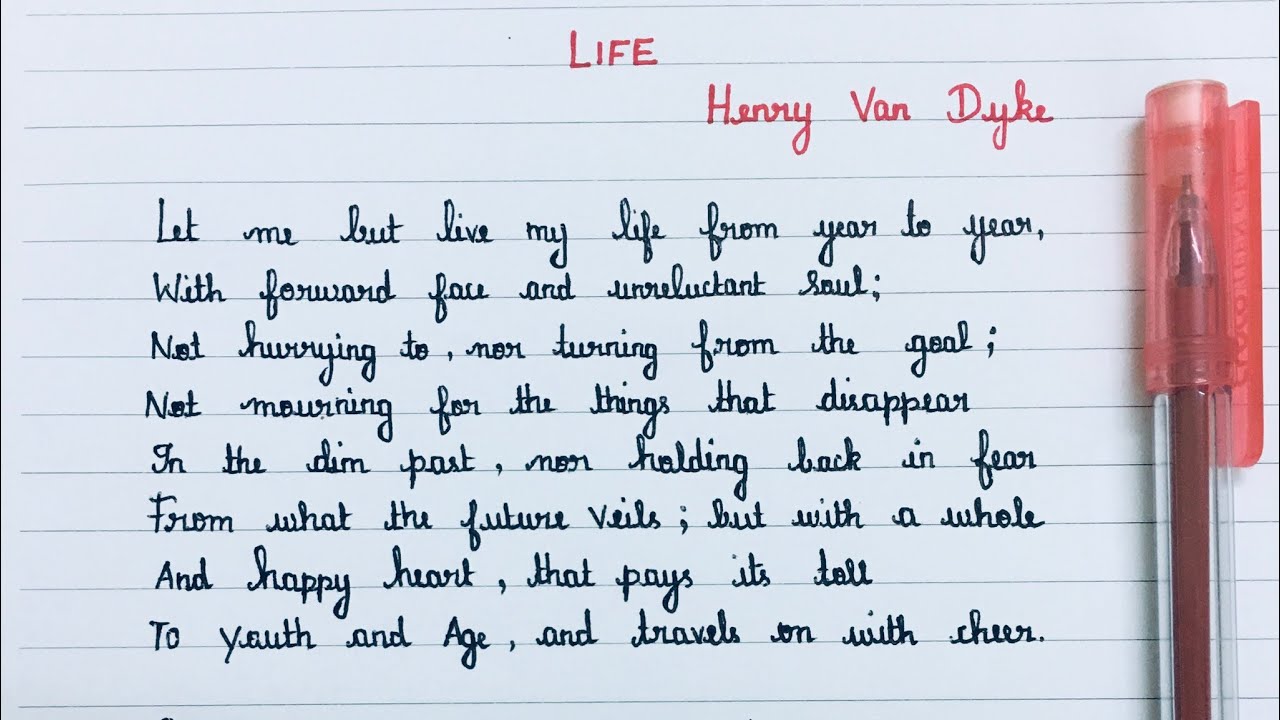 LIFE
Henry Van Dyke
Let me but live my life from year to year,
With forward face and unreluctant soul;
Not hurrying to, nor turning from the goal;
Not mourning for the things that disappear
In the dim past, nor holding back in fear
From what the future veils; but with a whole
And happy heart, that pays its toll
To Youth and Age, and travels on with cheer.